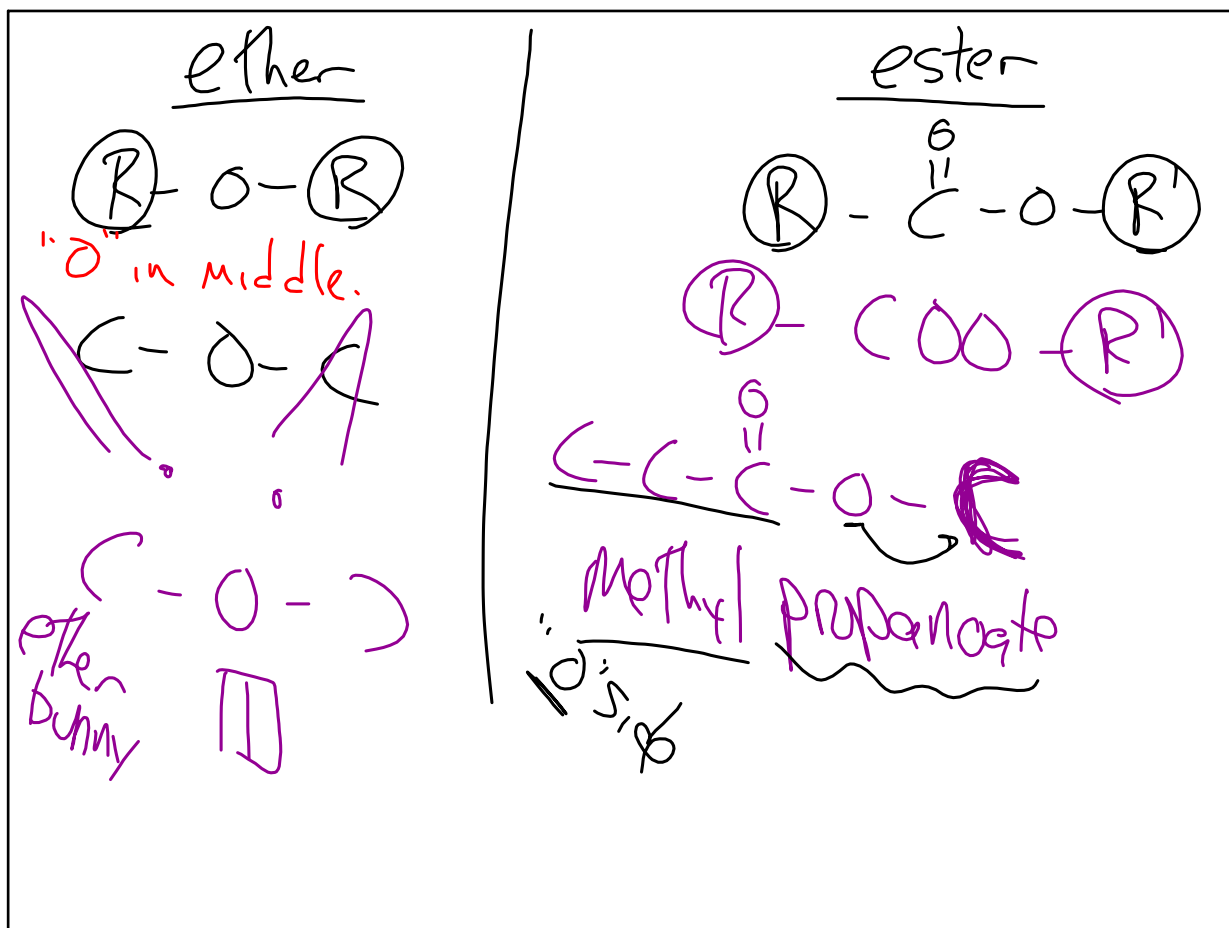 ether
R - O - R
"O" in middle.
C - O - C
C - O - C
ether
bunny
ester
O
R - C - O - R'
R - COO - R'
O
C - C - C - O - C
Methyl propanoate
"O"